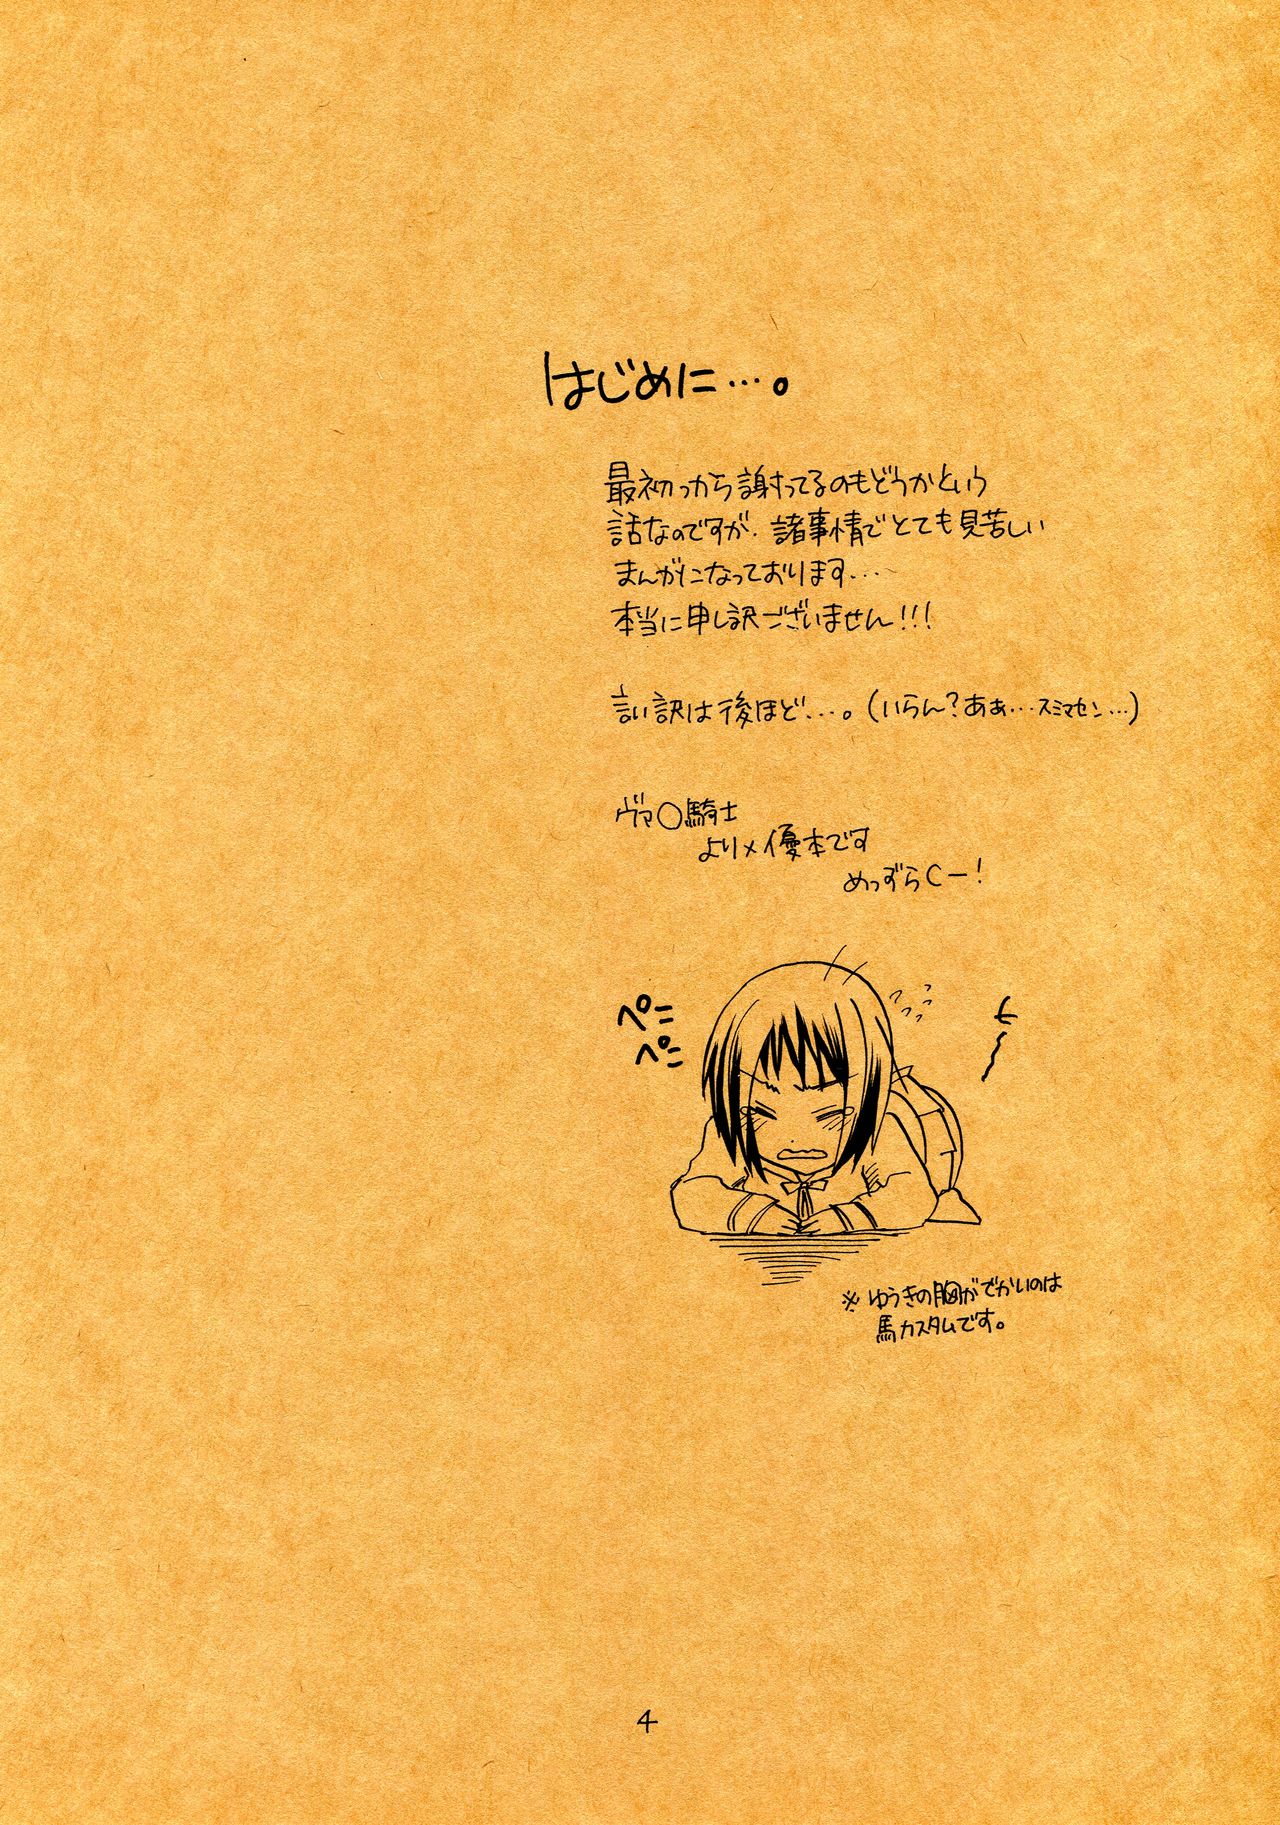 はじめに…。
最初っから謝ってるのもどうかという
話なのですが、諸事情でとても見苦しい
まんがになっております…
本当に申し訳ございません!!!
言い訳は後ほど…。(いらん?あぁ…スミマセン…)
ヴァ〇騎士
より×優本です
めっずらCー!
ペコ
ペコ
※ゆうきの胸がでかいのは
馬カスタムです。
4